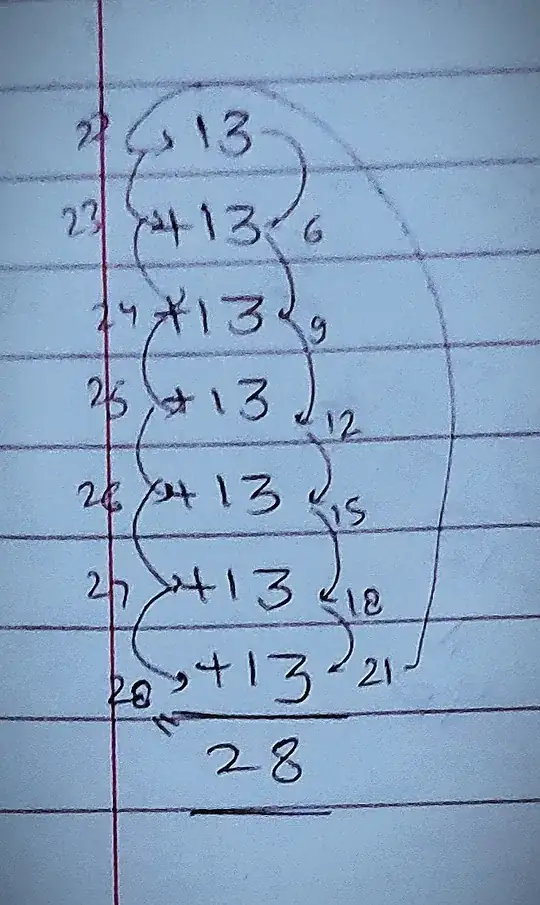 22 13
23 +13 6
24 +13 9
25 +13 12
26 +13 15
27 +13 18
28 +13 21
28